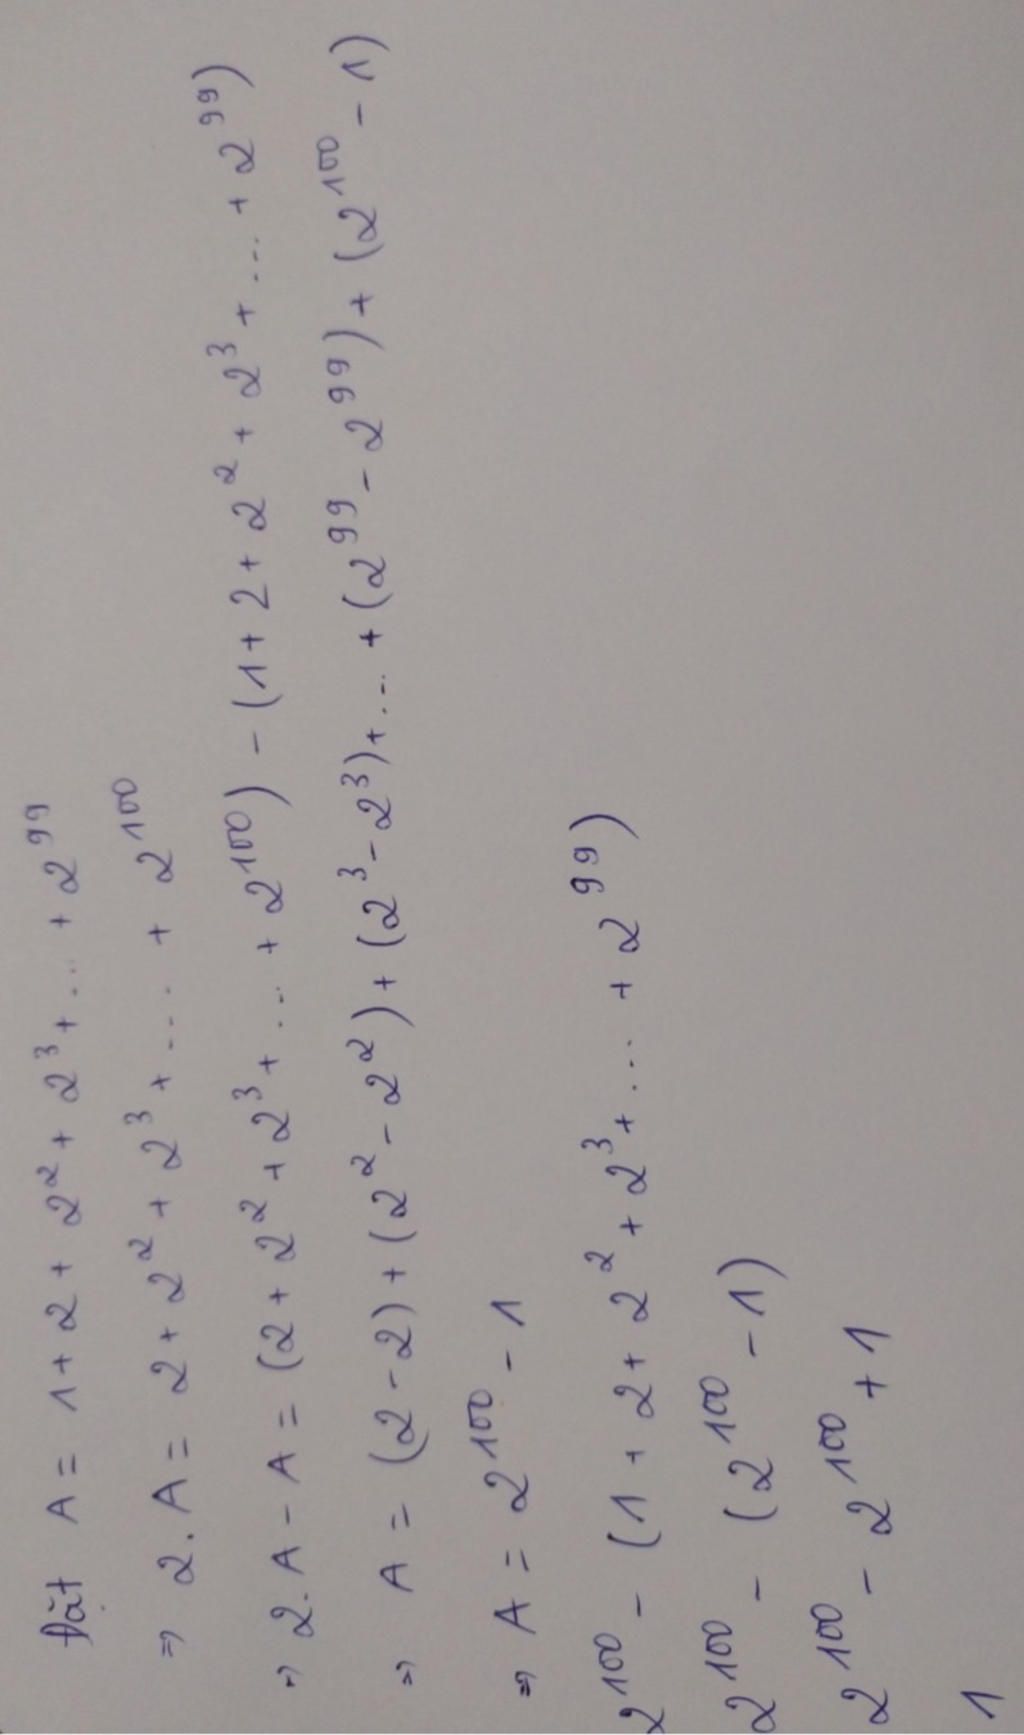 Đặt A = 1 + 2 + 2² + 2³ + ... + 2⁹⁹
⇒ 2.A = 2 + 2² + 2³ + ... + 2¹⁰⁰
⇒ 2.A - A = (2 + 2² + 2³ + ... + 2¹⁰⁰) - (1 + 2 + 2² + 2³ + ... + 2⁹⁹)
⇒ A = (2 - 2) + (2² - 2²) + (2³ - 2³) + ... + (2⁹⁹ - 2⁹⁹) + (2¹⁰⁰ - 1)
⇒ A = 2¹⁰⁰ - 1
2¹⁰⁰ - (1 + 2 + 2² + 2³ + ... + 2⁹⁹)
2¹⁰⁰ - (2¹⁰⁰ - 1)
2¹⁰⁰ - 2¹⁰⁰ + 1
1